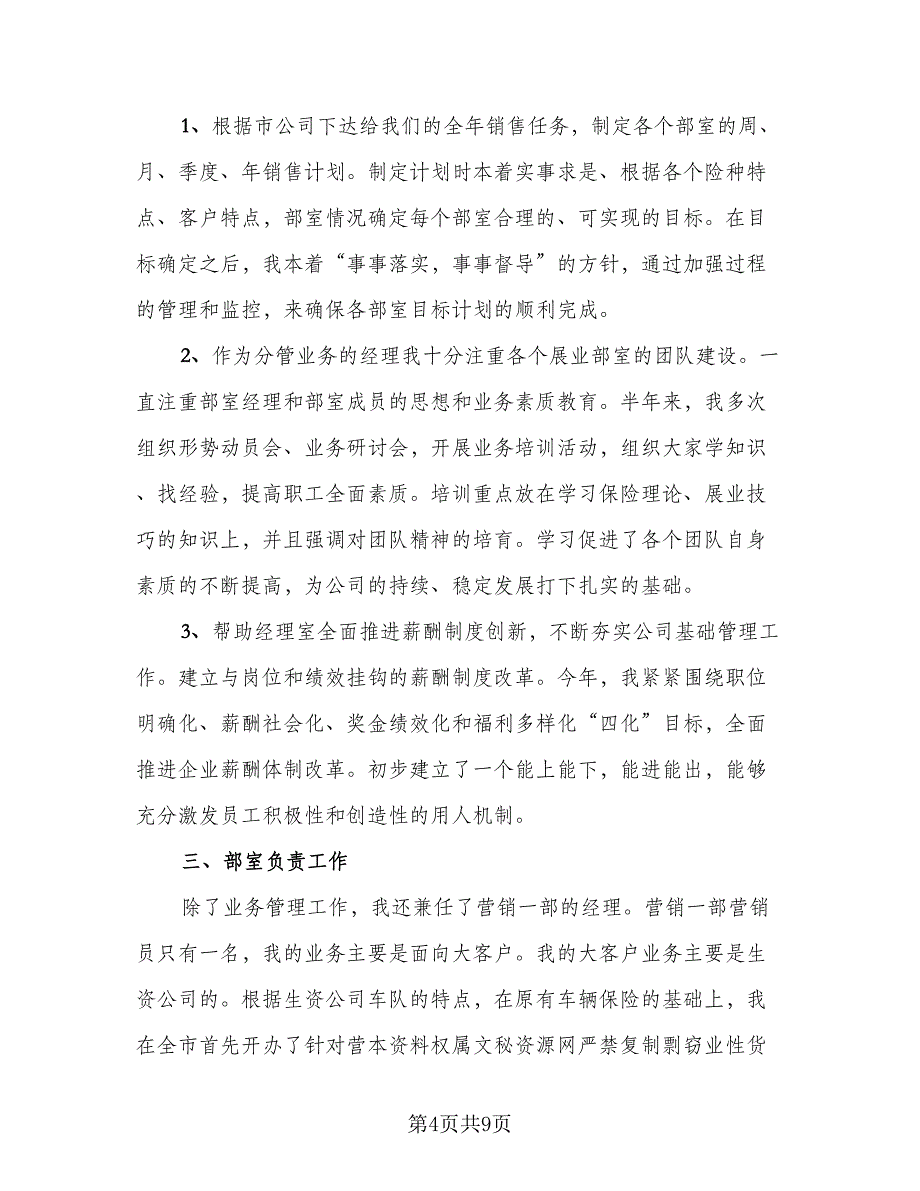 1、根据市公司下达给我们的全年销售任务，制定各个部室的周、
月、季度、年销售计划。制定计划时本着实事求是、根据各个险种特
点、客户特点，部室情况确定每个部室合理的、可实现的目标。在目
标确定之后，我本着“事事落实，事事督导”的方针，通过加强过程
的管理和监控，来确保各部室目标计划的顺利完成。
2、作为分管业务的经理我十分注重各个展业部室的团队建设。一
直注重部室经理和部室成员的思想和业务素质教育。半年来，我多次
组织形势动员会、业务研讨会，开展业务培训活动，组织大家学知识
、找经验，提高职工全面素质。培训重点放在学习保险理论、展业技
巧的知识上，并且强调对团队精神的培育。学习促进了各个团队自身
素质的不断提高，为公司的持续、稳定发展打下扎实的基础。
3、帮助经理室全面推进薪酬制度创新，不断夯实公司基础管理工
作。建立与岗位和绩效挂钩的薪酬制度改革。今年，我紧紧围绕职位
明确化、薪酬社会化、奖金绩效化和福利多样化“四化”目标，全面
推进企业薪酬体制改革。初步建立了一个能上能下，能进能出，能够
充分激发员工积极性和创造性的用人机制。
三、部室负责工作
除了业务管理工作，我还兼任了营销一部的经理。营销一部营销
员只有一名，我的业务主要是面向大客户。我的大客户业务主要是生
资公司的。根据生资公司车队的特点，在原有车辆保险的基础上，我
在全市首先开办了针对营本资料权属文秘资源网严禁复制剽窃业性货
第4页共9页